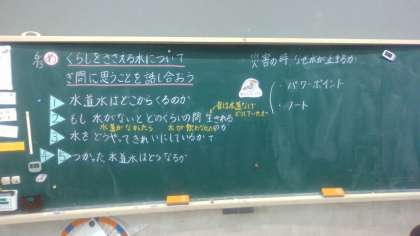 6/13
くらしをささえる水について
ぎ問に思うことを話し合おう
1 水道水はどこからくるのか
2 もし水がないとどのくらいの間生きれるか
昔は水道なしで
水道がなかったら
3 水をどうやってきれいにしているか
4 5 つかった水道水はどうなるか
災害の時なぜ水が止まるか
・パワーポイント
・ノート